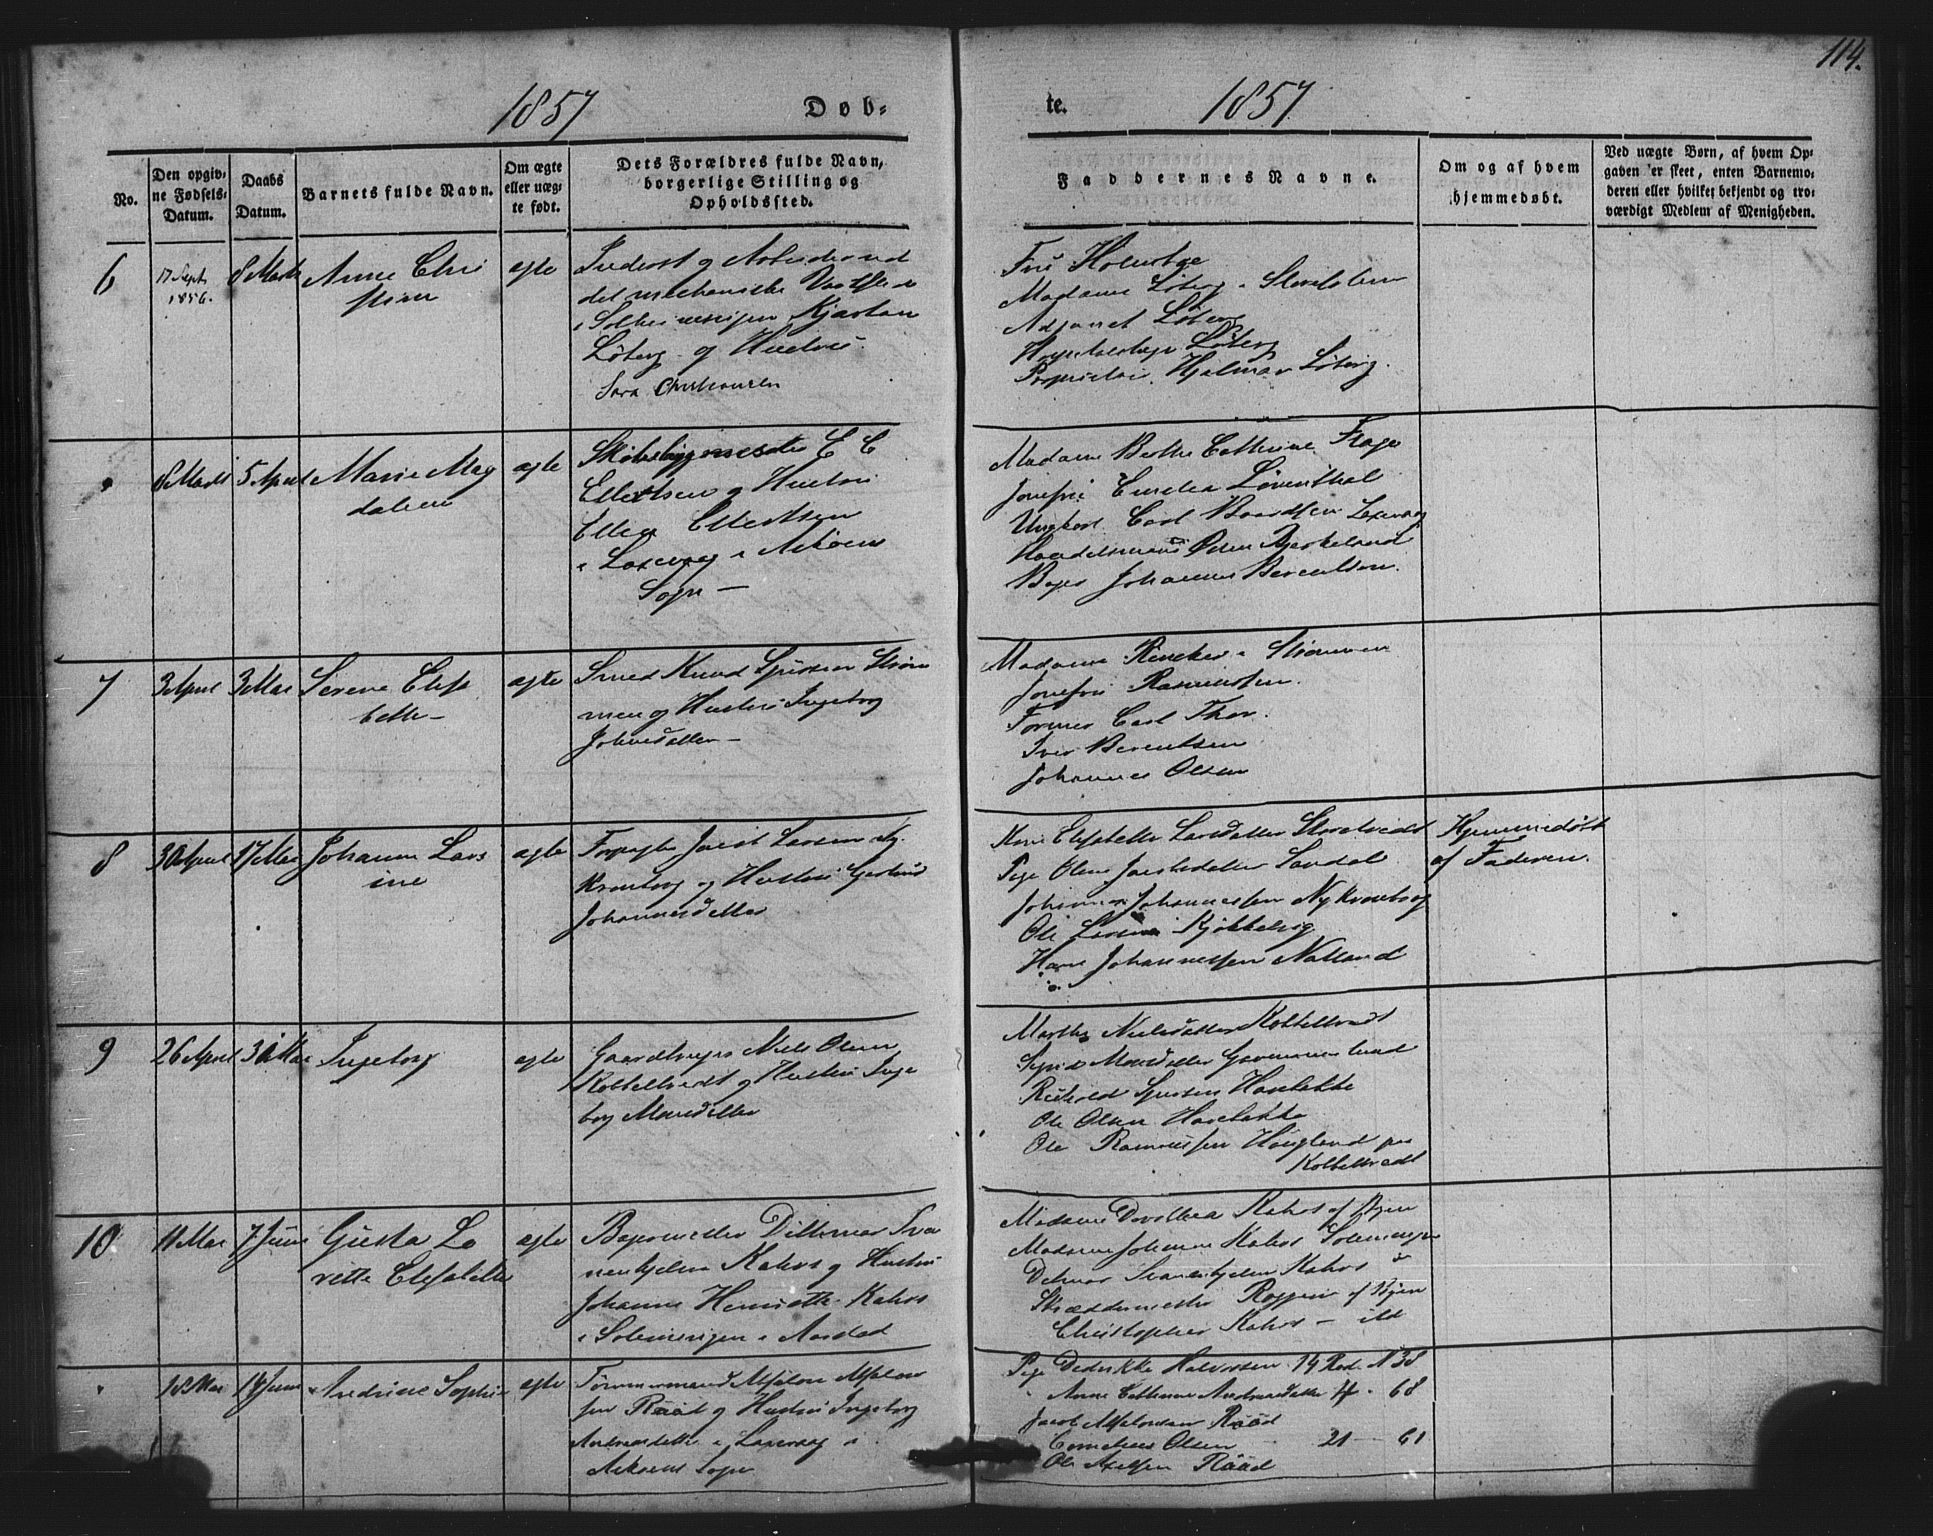 114.
1857 Døb-
te. 1857
No.
Den opgiv-
ne Fødsels-
Datum.
Daabs
Datum.
Barnets fulde Navn.
Om ægte
eller uæg-
te født.
Dets Forældres fulde Navn,
borgerlige Stilling og
Opholdssted.
Faddernes Navne.
Om og af hvem
hjemmedøbt.
Ved uægte Børn, af hvem Op-
gaven er skeet, enten Barnemo-
deren eller hvilket bekjendt og tro-
værdigt Medlem af Menigheden.
6
17 Sept
1856.
8 Marts
Anne Chri
stine
ægte
Inderst og Arbeidsmand
det mechaniske Værksted
i Solheimsvigen Kjartan
Løberg og Hustru
Sara Christensen
Fru
Madame Løberg i Storedalen
Adjunct Løberg
Løberg
Proprietair Hjalmar Løberg.
8 Marts
5 April
Marie Mag
dalene
ægte
Skibsbyggmester E E
Ellertsen og Hustru
Ellen Ellertsen
i Laxevaag i Askøens
Sogn —
Madame Berthe Cathrine
Jomfru Emilia Løventhal
Ungkarl Carl Laxevaag
Handelsmand Birkeland
Johannes Berentsen.
7
3 April
3 Mai
Serene Elisa
beth —
ægte
Smed Knud Sjursen Strøm
men og Hustru Ingeborg
Johnsdatter —
Madame i Strømmen
Jomfru Rasmussen.
Former Carl Thor.
Iver Berentsen
Johannes Olsen
8
30 April
17 Mai
Johanne Lars
ine
ægte
Forpagter Larsen Ny
Kronborg og Hustru Gjertrud
Johannesdatter
Kone Elisabeth Larsdatter
Pige Oline Sandal
Johannes Johannessen Ny Kronborg
Ole Larsen
Hans Johannessen Natland
Hjemmedøbt
af Faderen.
9
26 April
31 Mai
Ingeborg
ægte
Gaardbruger Niels Olsen
Koltveit og Hustru Inge
borg Monsdatter
Martha Nielsdatter
Sjursen
Ole Olsen
Ole Rasmussen Haugland paa
10
11 Mai
7 Juni
Gusta La
rette Elisabeth
ægte
Dithmar Sva
nenhjelm Kahrs og Hustru
Johanne Henriette Kahrs
i Solemsvigen i Aarstad
Madame Dorothea Kahrs af Byen
Madame Johanne Kahrs Solemsvigen
Detmar Svanenhjelm Kahrs
Skræddermester af Byen
Christopher Kahrs —
18 Mai
14 Juni
Andrine Sophie
ægte
Tømmermand Absalon Absalon
sen Raad og Hustru Ingeborg
Andreasdatter i Laxevaag i
Askøens Sogn
Pige Halvorsen 14 Rod N 38
Anne Cathrine Andreasdatter 68
Jacob Absalonsen Raad
Cornelius Olsen 21 — 61
Ole Axelsen Raad